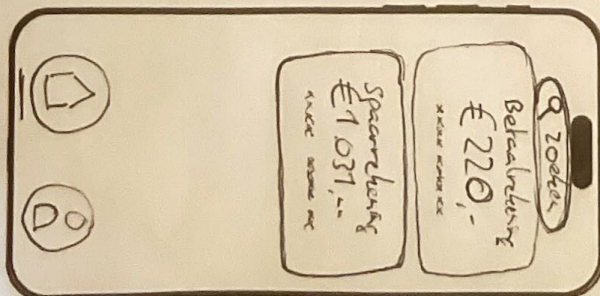 Zoeken
Betaalrekening
€220,-
xxxx xxxx xx
Spaarrekening
€1.031,--